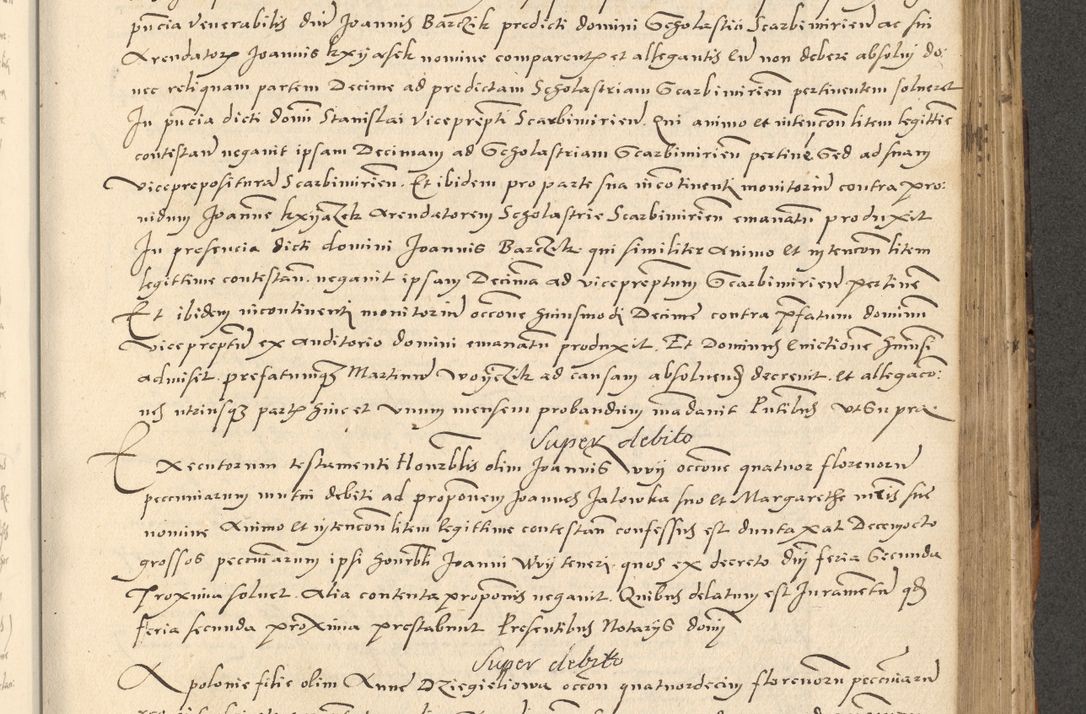 pñcia venerabilis dñi Joannis Barczik predicti domini Scholastici Scarbimirieñ ac sui
Arendatorꝭ Joannis kxyasek nomine comparentꝭ et allegantis Eũ non debere absolui do:
nec reliquam partem Decime ad predictam Scholastriam Scarbimirieñ pertinentem solueret
In pñcia dicti domi Stanislai viceprepti Scarbimirieñ. Qui animo et intencoñ litem legittie
contestañ negauit ipsam Decimam ad Scholastriam Scarbimirieñ pertine Sed ad suam
viceprepositurã Scarbimirieñ. Et ibidem pro parte sua incontinenti monitoriũ contra pro:
uidum Joanne kxyazek Arendatorem Scholastrie Scarbimirieñ emanatũ produxit
In presencia dicti domini Joannis Barczik qui similiter animo et intencoñ litem
legittime contestañ. negauit ipsam Decimã ad vicepreptum Scarbimirieñ pertine
Et ibidem incontinenti monitoriũ occone huiusmodi Decime contra pfatum dominũ
vicepreptũ ex auditorio domini emanatũ produxit. Et Dominus euictione huiusmi
admisit. prefatumqꝫ Martinũ Woyczik ad causam absoluend decreuit. et allegaco:
nes utriusqꝫ partꝭ hinc et unum mensem probandum mãdauit Pntibus vt Supra
Super debito
Executorum testamenti Honrbilis olim Joannis Wyy occone quatuor florenorũ
pecuniarum mutui debiti ad proponem Joannes Jalowka suo et Margarethe mris sue
nomine Animo et intencoñ litem legittime contestañ confessus est duntaxat Decemocto
grossos pecuniarum ipsi honrbli Joanni Wyy teneri. quos ex decreto dñi feria Secunda
Proxima soluet. Alia contenta proponis negauit. Quibus delatum est Juramentũ qd
feria secunda proxima prestabunt Presentibus Notarys domi
Super debito
Apolonie filie olim Anne Dziegieliowa occoñ quatuordecim florenorũ pecuniarũ